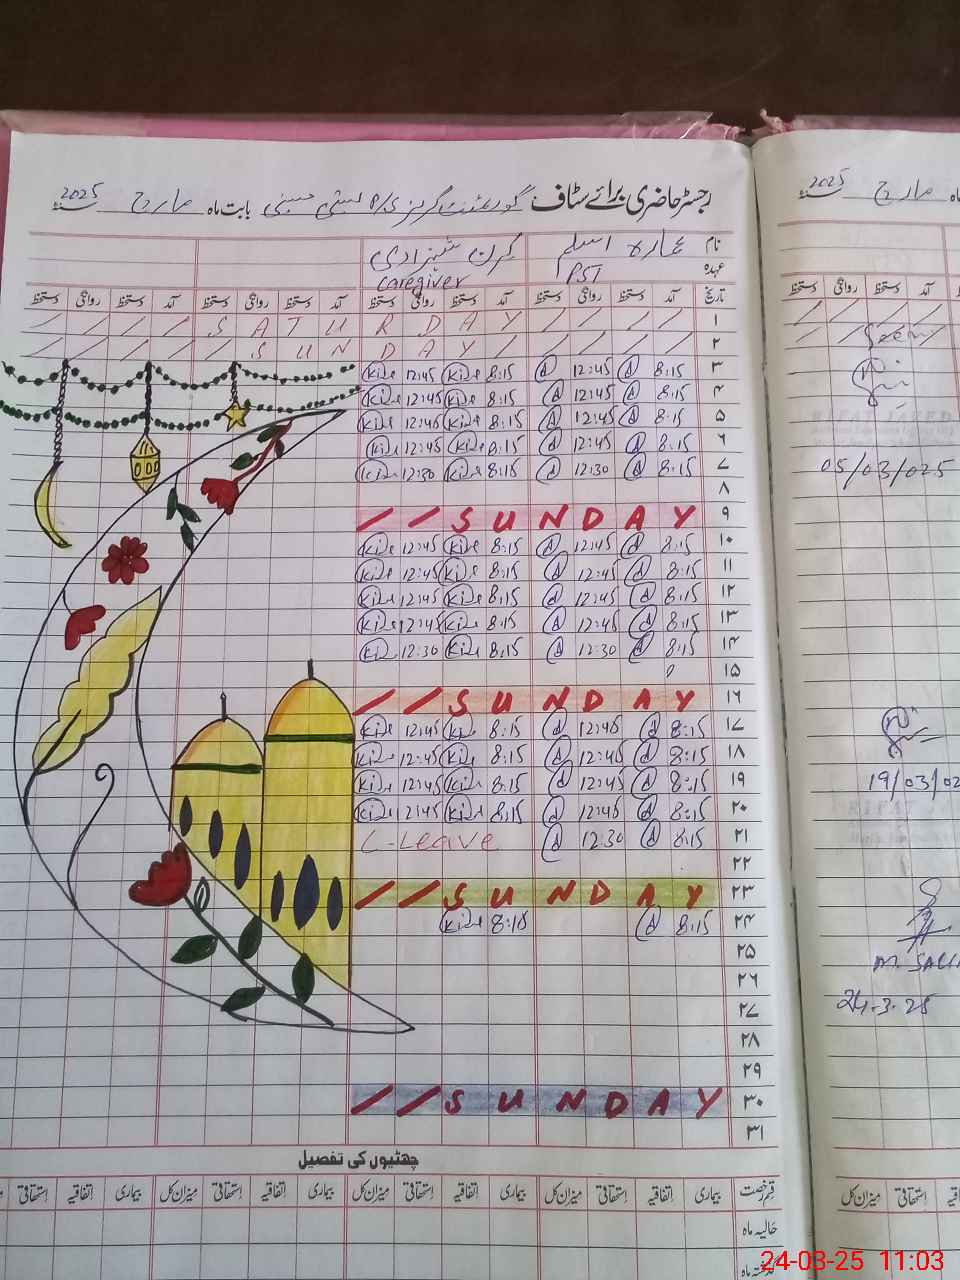 رجسٹر حاضری برائے سٹاف گورنمنٹ گرلز بابت ماہ مارچ سنہ 2025
نام عمارہ اسلم کرن شہزادی
عہدہ PST Caregiver
تاریخ آمد دستخط روانگی دستخط آمد دستخط روانگی دستخط آمد دستخط روانگی دستخط آمد دستخط روانگی دستخط
۱ S A T U R D A Y
۲ S U N D A Y
۳ 8:15 12:45 8:15 12:45
۴ 8:15 12:45 8:15 12:45
۵ 8:15 12:45 8:15 12:45
۶ 8:15 12:45 8:15 12:45
۷ 8:15 12:30 8:15 12:30
۸
۹ S U N D A Y
۱۰ 8:15 12:45 8:15 12:45
۱۱ 8:15 12:45 8:15 12:45
۱۲ 8:15 12:45 8:15 12:45
۱۳ 8:15 12:45 8:15 12:45
۱۴ 8:15 12:30 8:15 12:30
۱۵
۱۶ S U N D A Y
۱۷ 8:15 12:45 8:15 12:45
۱۸ 8:15 12:45 8:15 12:45
۱۹ 8:15 12:45 8:15 12:45
۲۰ 8:15 12:45 8:15 12:45
۲۱ 8:15 12:30 C-Leave
۲۲
۲۳ S U N D A Y
۲۴ 8:15 8:10
۲۵
۲۶
۲۷
۲۸
۲۹
۳۰ S U N D A Y
۳۱
چھٹیوں کی تفصیل
قسم رخصت بیماری اتفاقیہ استحقاقی میزان کل بیماری اتفاقیہ استحقاقی میزان کل بیماری اتفاقیہ استحقاقی میزان کل بیماری اتفاقیہ استحقاقی
حالیہ ماہ
گذشتہ ماہ
ماہ مارچ سنہ 2025
آمد دستخط روانگی دستخط
05/03/025
19/03/02
24-3-25
اتفاقیہ استحقاقی میزان کل
24-03-25 11:03